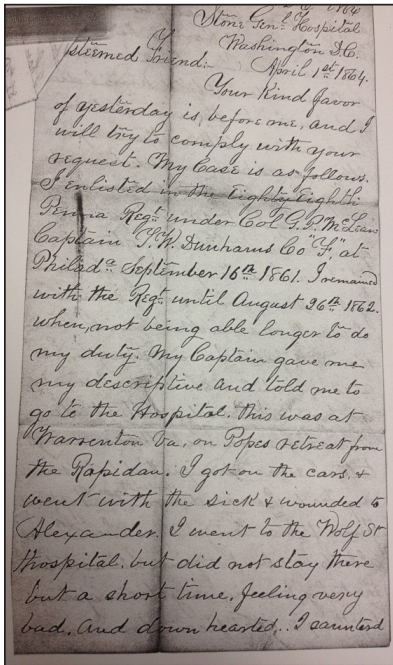 Stone Genl. Hospital
Washington D.C.
April 1st 1864.
steemed Friend:-
Your Kind favor
of yesterday is, before me, and I
will try to comply with your
request. My Case is as follows.
I enlisted in the Eighty Eighth
Penna Regt. under Col G. P. McLean
Captain W. Dunhams Co "F," at
Philada September 16th 1861. I remained
with the Regt. until August 26th 1862.
when, not being able longer to do
my duty. My Captain gave me
my descriptive and told me to
go to the Hospital. this was at
Warrenton Va, on Popes retreat from
the Rapidan. I got on the cars, &
went with the sick & wounded to
Alexander. I went to the Wolf St
Hospital. but did not stay there
but a short time, feeling very
bad. And down hearted.. I saunterd